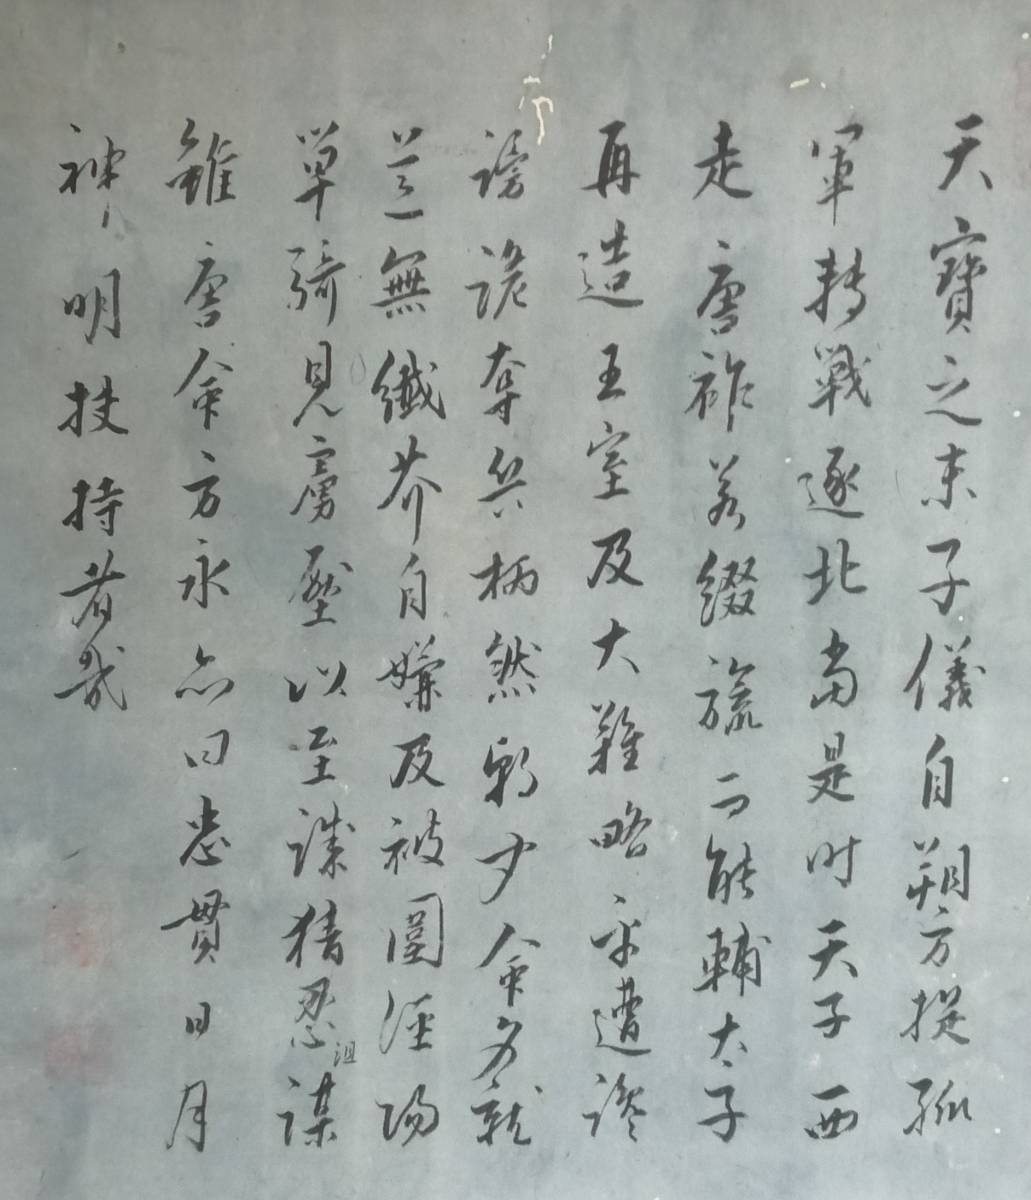 天寶之末子儀自朔方提孤
軍轉戰逐北當是时天子西
走唐祚若綴旒而能輔太子
再造王室及大難略平遭讒
謗詭奪兵柄然朝聞命夕就
道無纖芥自嫌及被圍涇陽
單騎見虜壓以至誠猜忍沮謀
雖唐命方永亦由忠貫日月
神明扶持者哉